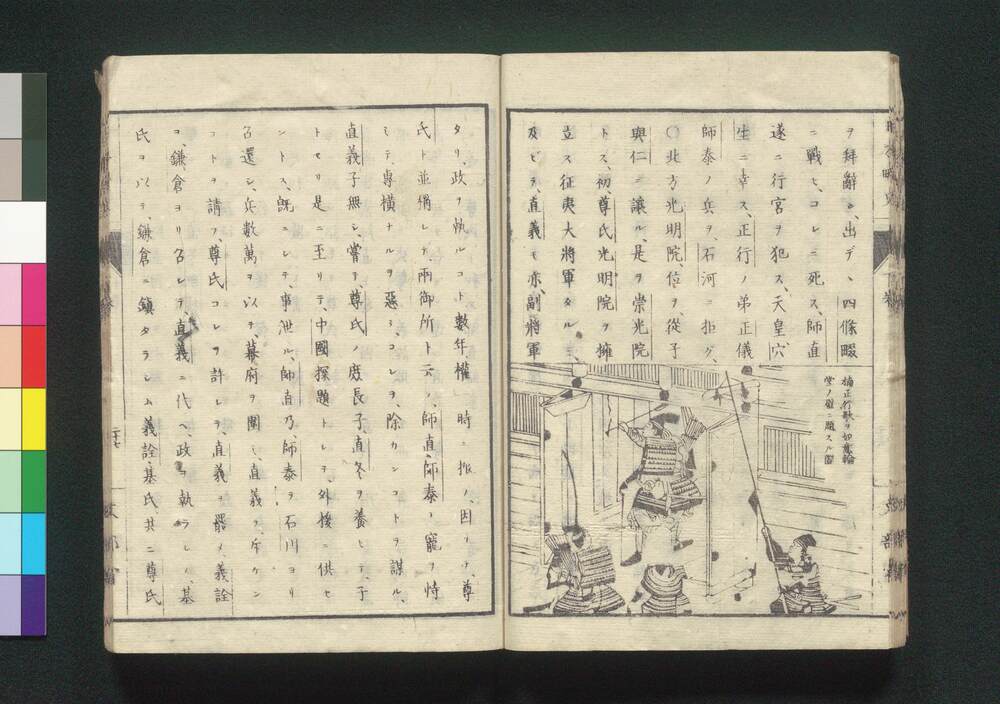 ヲ拜辭シ、出デヽ四條畷
ニ戰ヒ、コレニ死ス、師直
遂ニ行宮ヲ犯ス、天皇穴
生ニ幸ス、正行ノ弟正儀
師泰ノ兵ヲ、石河ニ拒グ、
〇北方光明院、位ヲ從子
興仁ニ讓ル、是ヲ崇光院
トス、初、尊氏光明院ヲ擁
立ス征夷大將軍タルニ
及ビテ、直義モ亦、副將軍
楠正行歌ヲ如意輪
堂ノ壁ニ題スル圖
タリ、政ヲ執ルコト數年、權一時ニ振ヒ、因テ、尊
氏ト並稱シテ兩御所ト云フ、師直、師泰、寵ヲ恃
ミテ、專横ナルヲ惡ミ、コレヲ、除カンコトヲ謀ル、
直義子無シ、嘗テ、尊氏ノ庶長子、直冬ヲ養ヒテ、子
トセリ是ニ至リテ、中國探題トシテ、外援ニ供セ
ントス、既ニシテ、事泄ル、師直乃、師泰ヲ石川ヨリ
召還シ、兵數萬ヲ以テ、幕府ヲ圍ミ、直義ヲ、斥ケン
コトヲ請フ、尊氏コレヲ許シテ、直義ヲ罷メ、義詮
ヲ、鎌倉ヨリ召シテ、直義ニ代ヘ、政ヲ執ラシメ、基
氏ヲ以テ、鎌倉ニ鎭タラシム義詮、基氏、共ニ尊氏
二十七